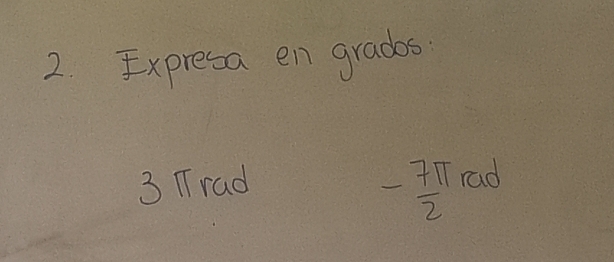 2. Expresa en grados:
3 π rad -7π/2 rad